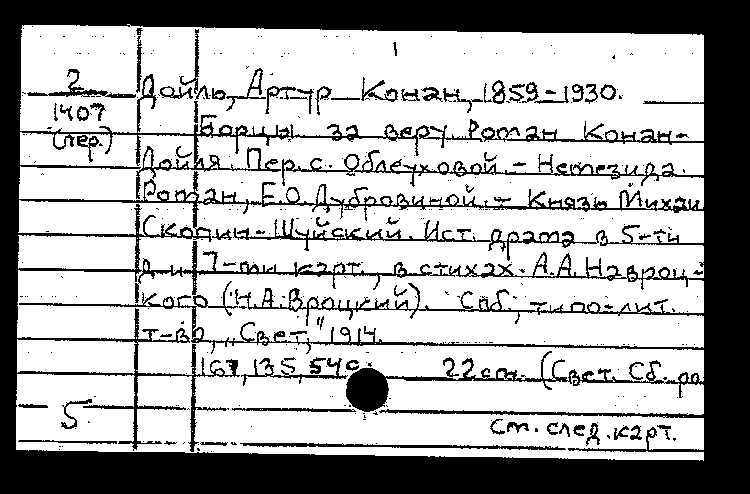 1
2
1407
(пер.)
Дойль, Артур Конан, 1859-1930.
Борцы за веру. Роман Конан-
Дойля. Пер. с. Облеуховой. - Немезида.
Роман, Е.О.Дубровиной. - Князь Михаи
Скопин-Шуйский. Ист. драма в 5-ти
д. и 7-ми карт., в стихах. А.А.Навроц-
кого (Н.А.Вроцкий). Спб., типо-лит.
т-ва, „Свет," 1914.
167, 135, 54 с. 22 cm. (Свет. Сб. ро
5
См. след. карт.